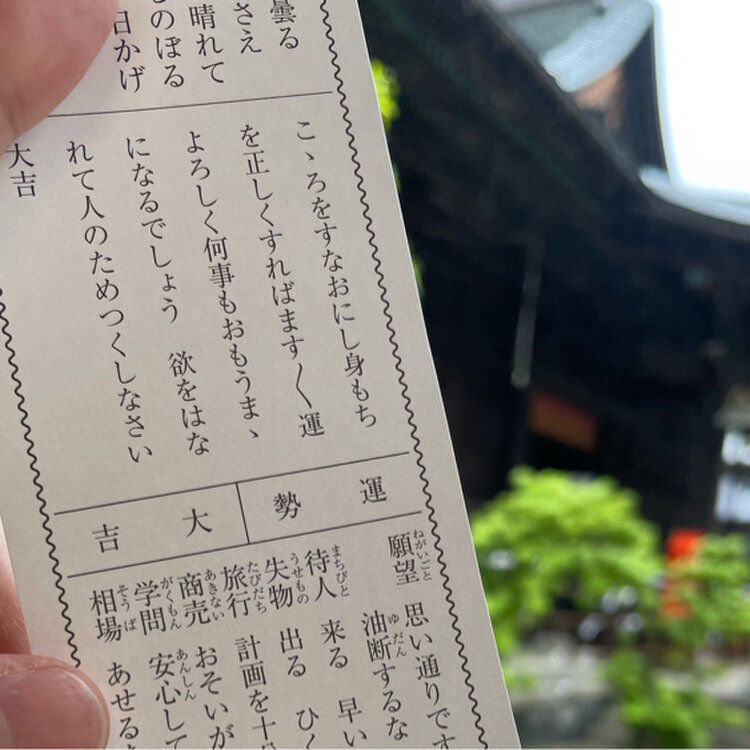 曇る
さえ
晴れて
のぼる
日かげ
こゝろをすなおにし身もち
を正しくすればます〱運
よろしく何事もおもうまゝ
になるでしょう 欲をはな
れて人のためつくしなさい
大吉
運勢
大吉
願望 ねがいごと 思い通りです
油断するな ゆだん
待人 まちびと 来る 早い
失物 うせもの 出る ひく
旅行 たびだち 計画を十分
商売 あきない おそいが
学問 がくもん 安心して あんしん
相場 そうば あせるな